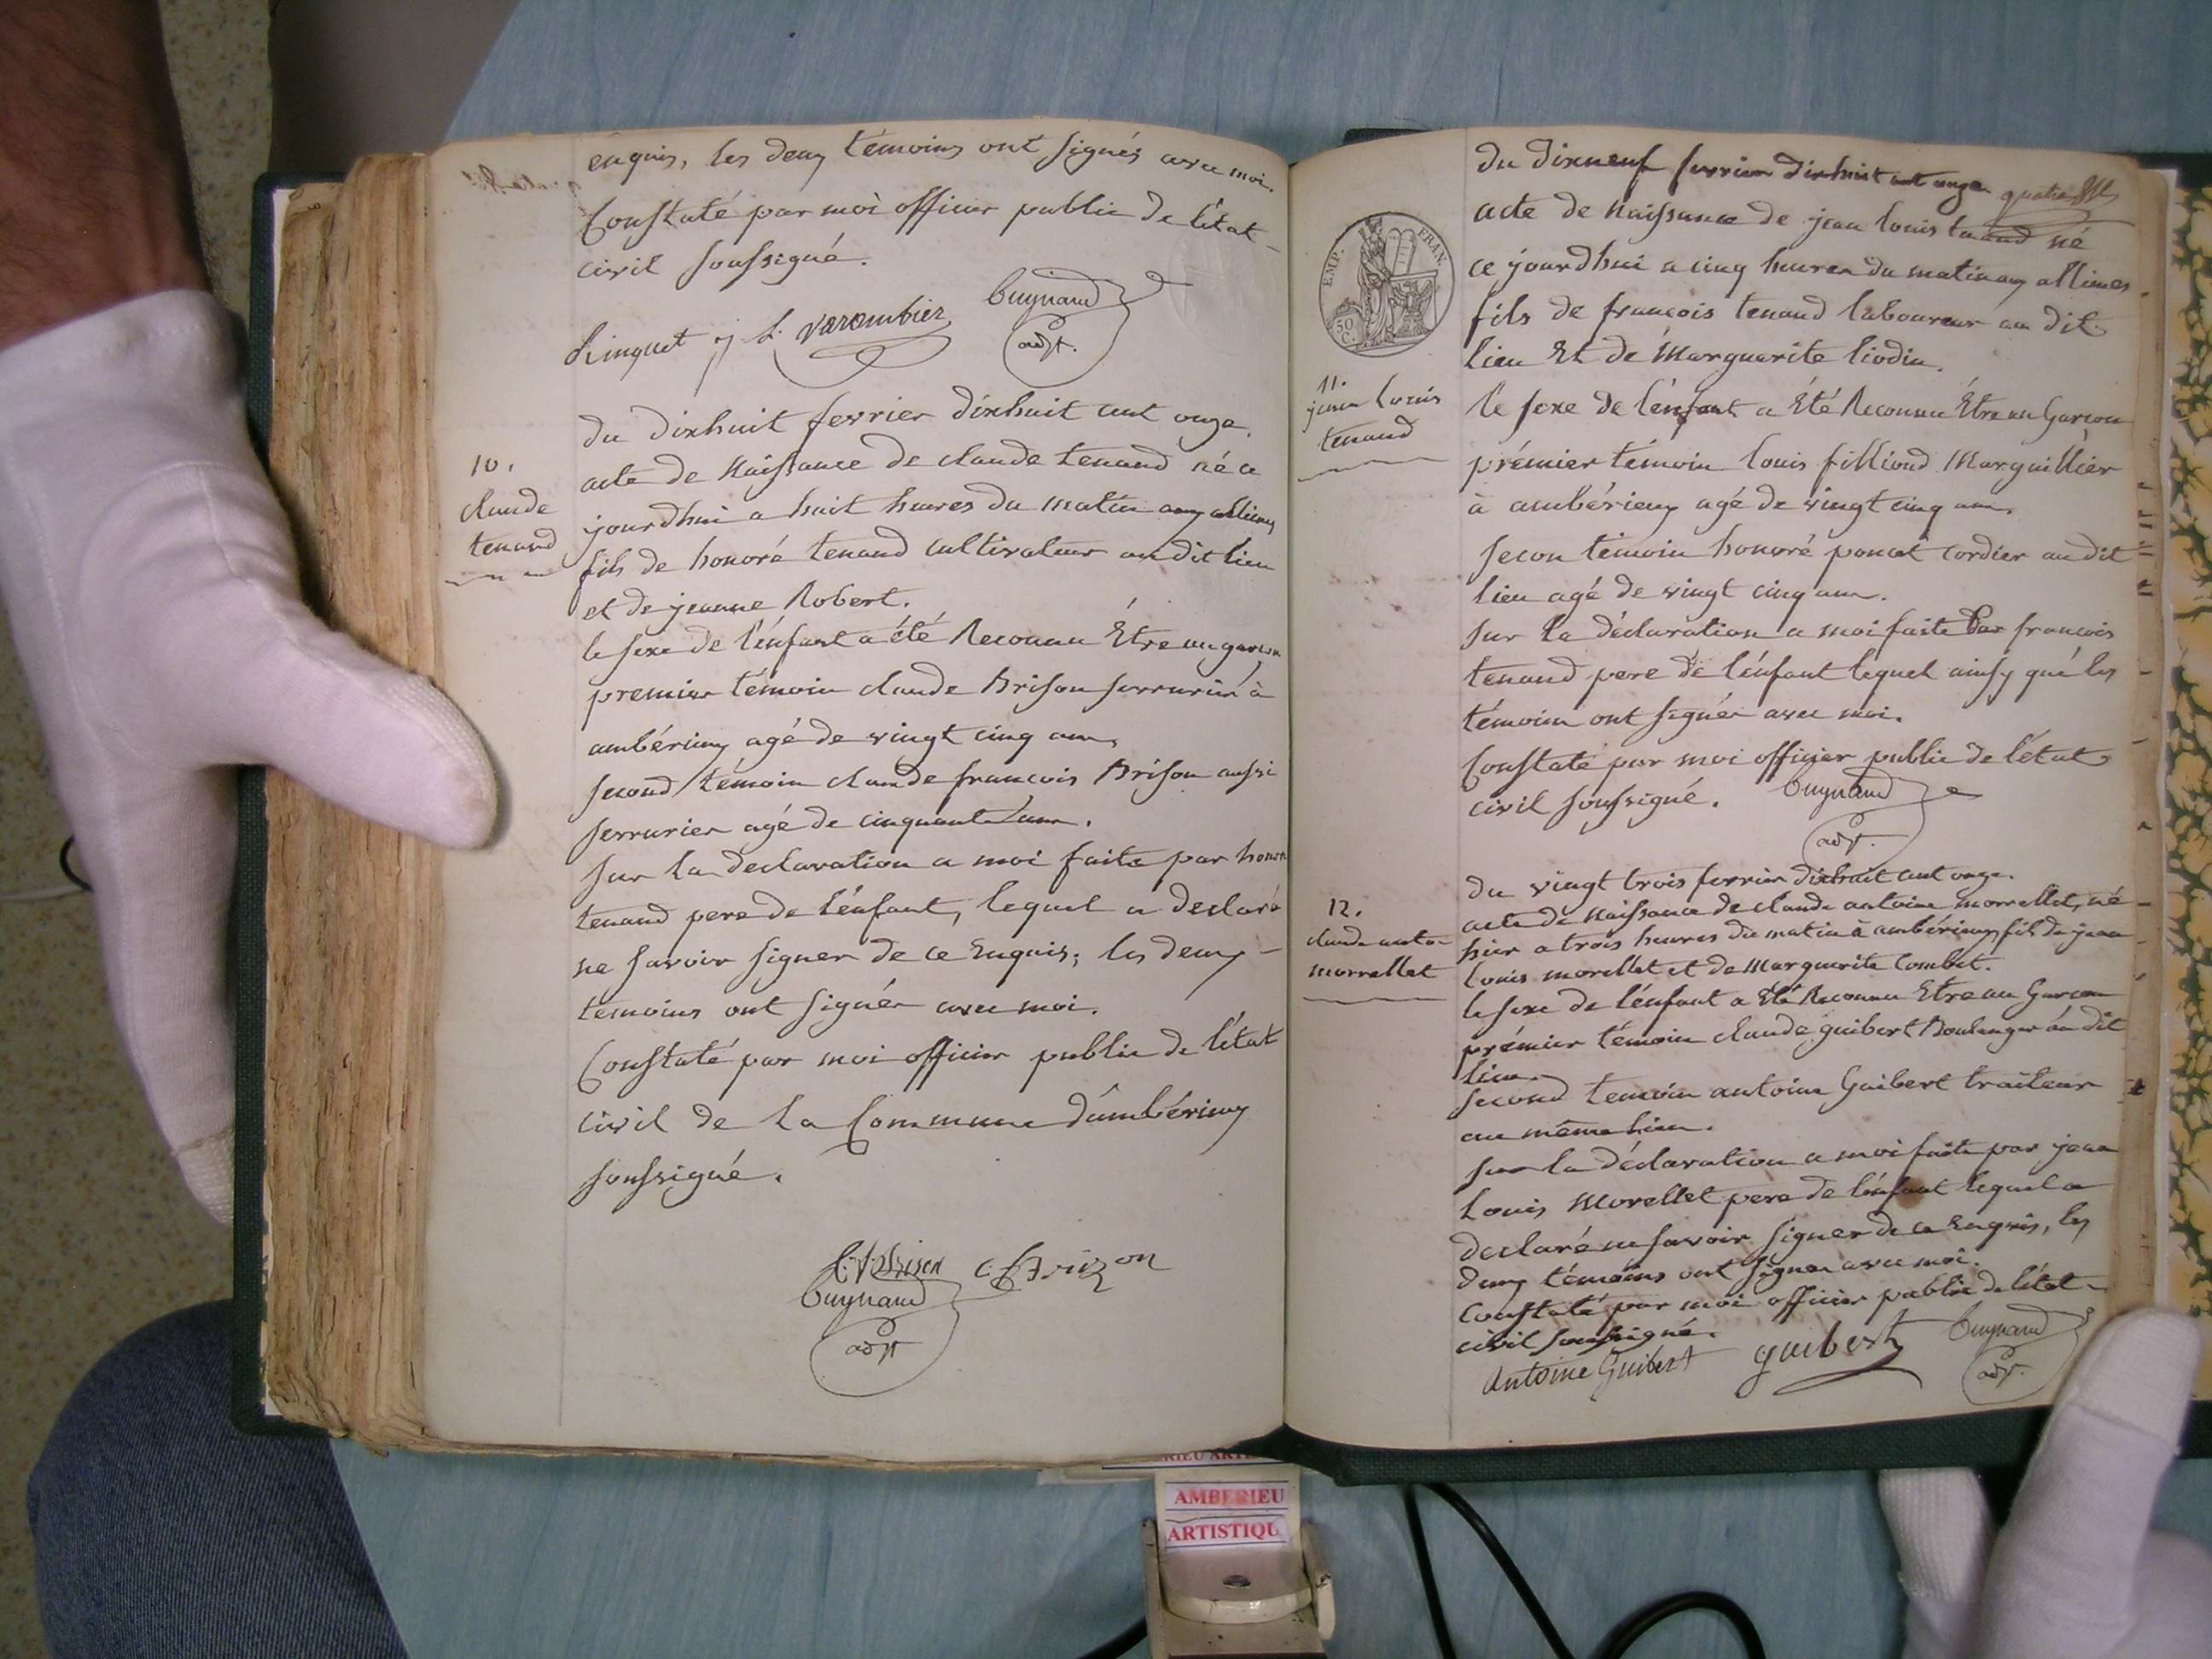 enquis, les deux témoins ont signés avec moi.
Constaté par moi officier public de l'état
civil soussigné.
Linquet j L. varombier Buynand
adjt.
10.
claude
tenand
du dixhuit fevrier dixhuit cent onze.
acte de Naissance de claude tenand né ce
jourdhui a huit heures du matin aux allimes
fils de honoré tenand cultivateur au dit lieu
et de jeanne Robert.
le sexe de l'énfant a été Reconnu Être un garcon
premier témoin claude Brison serrurier à
ambérieux agé de vingt cinq ans,
second témoin claude francois Brison aussi
serrurier agé de cinquante ans.
sur la declaration a moi faite par honoré
tenand pere de l'énfant, lequel a declaré
ne savoir signer de ce Enquis; les deux
temoins ont signés avec moi.
Constaté par moi officier public de l'état
civil de la Commune d'ambérieux
soussigné.
Brison C. f Brizon
Buynand
adjt
du dixneuf fevrier dixhuit cent onze
EMP. FRAN.
50 C.
11.
jean louis
tenand
acte de Naissance de jean louis tenand né
ce jourdhui a cinq heures du matin aux allimes
fils de francois tenand laboureur au dit
lieu Et de Marguerite liodin.
le sexe de l'énfant a Été Reconnu Être un Garcon
prémier témoin louis filliond Marguillier
à ambérieux agé de vingt cinq ans.
secon témoin honoré poncet cordier au dit
lieu agé de vingt cinq ans.
sur la déclaration a moi faite Par francois
tenand pere de l'énfant lequel ainsy que les
témoins ont signés avec moi.
Constaté par moi officier public de l'état
civil soussigné. Buynand
adjt.
12.
claude anto-
morrellet
du vingt trois fevrier dixhuit cent onze.
acte de Naissance de claude antoine morrellet, né
hier a trois heures du matin à ambérieux fils de jean
louis morellet et de Marguerite Combet.
le sexe de l'énfant a Été Reconnu Etre un Garcon
prémier témoin claude guibert Boulanger au dit
lieu
second temoin antoine Guibert traiteur
au même lieu.
sur la déclaration a moi faite par jean
Louis Morellet pere de l'énfant lequel a
declaré ne savoir signer de ce Enquis, les
deux témoins ont signer avec moi.
Constaté par moi officier public de l'état
civil soussigné.
Antoine Guibert guibert Buynand
adjt.
AMBERIEU
ARTISTIQU